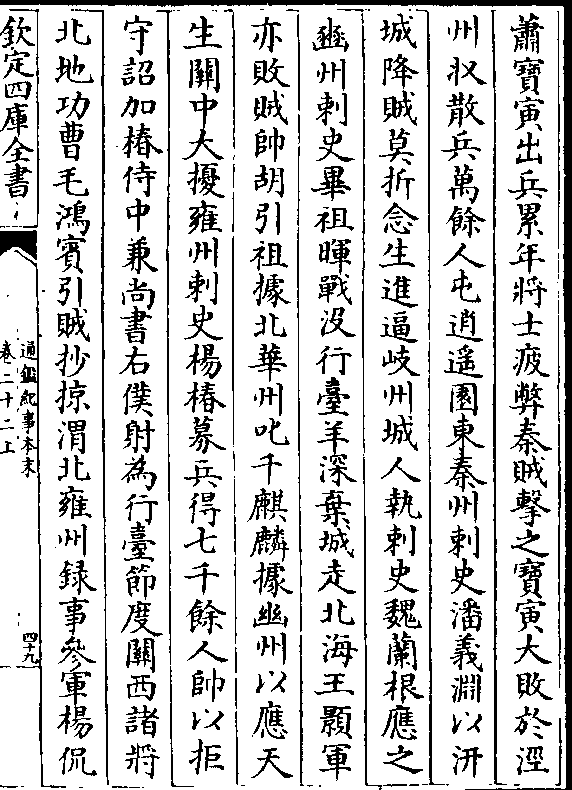 蕭寶寅出兵累年將士疲弊秦賊擊之寶寅大敗於涇
州收散兵萬餘人屯逍遥園東秦州刺史潘義淵以汧
城降賊莫折念生進逼岐州城人執刺史魏蘭根應之
豳州刺史畢祖暉戰没行臺羊深棄城走北海王顥軍
亦敗賊帥胡引祖據北華州叱千麒麟據豳州以應天
生關中大擾雍州刺史楊椿募兵得七千餘人帥以拒
守詔加椿侍中兼尚書右僕射為行臺節度關西諸將
北地功曹毛鴻賓引賊抄掠渭北雍州録事參軍楊侃
欽定四庫全書
通鑑紀事本末
卷二十二上
四十九